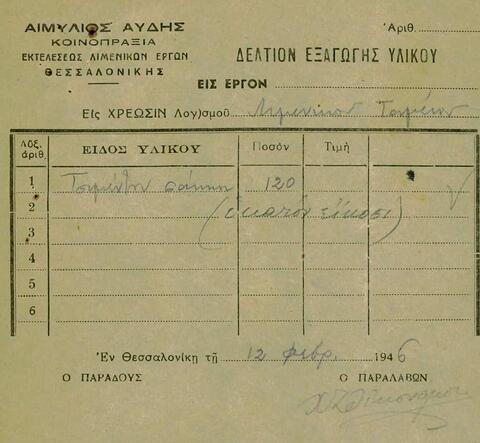 ΑΙΜΥΛΙΟΣ ΑΥΔΗΣ
ΚΟΙΝΟΠΡΑΞΙΑ
ΕΚΤΕΛΕΣΕΩΣ ΛΙΜΕΝΙΚΩΝ ΕΡΓΩΝ
ΘΕΣΣΑΛΟΝΙΚΗΣ
Ἀριθ.
ΔΕΛΤΙΟΝ ΕΞΑΓΩΓΗΣ ΥΛΙΚΟΥ
ΕΙΣ ΕΡΓΟΝ
Εἰς ΧΡΕΩΣΙΝ Λογ)σμοῦ Λιμενικοῦ Ταμείου
Αὔξ. ἀριθ. ΕΙΔΟΣ ΥΛΙΚΟΥ Ποσόν Τιμὴ
1 Τσιμέντου σάκκοι 120
2 (ἑκατὸν εἴκοσι)
3
4
5
6
Ἐν Θεσσαλονίκῃ τῇ 12 Φεβρ. 1946
Ο ΠΑΡΑΔΟΥΣ Ο ΠΑΡΑΛΑΒΩΝ